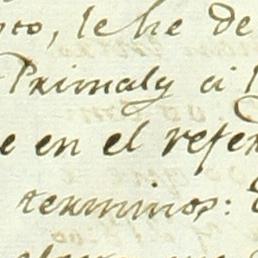 to, le he de
Primaly a l
e en el refer
terminos: